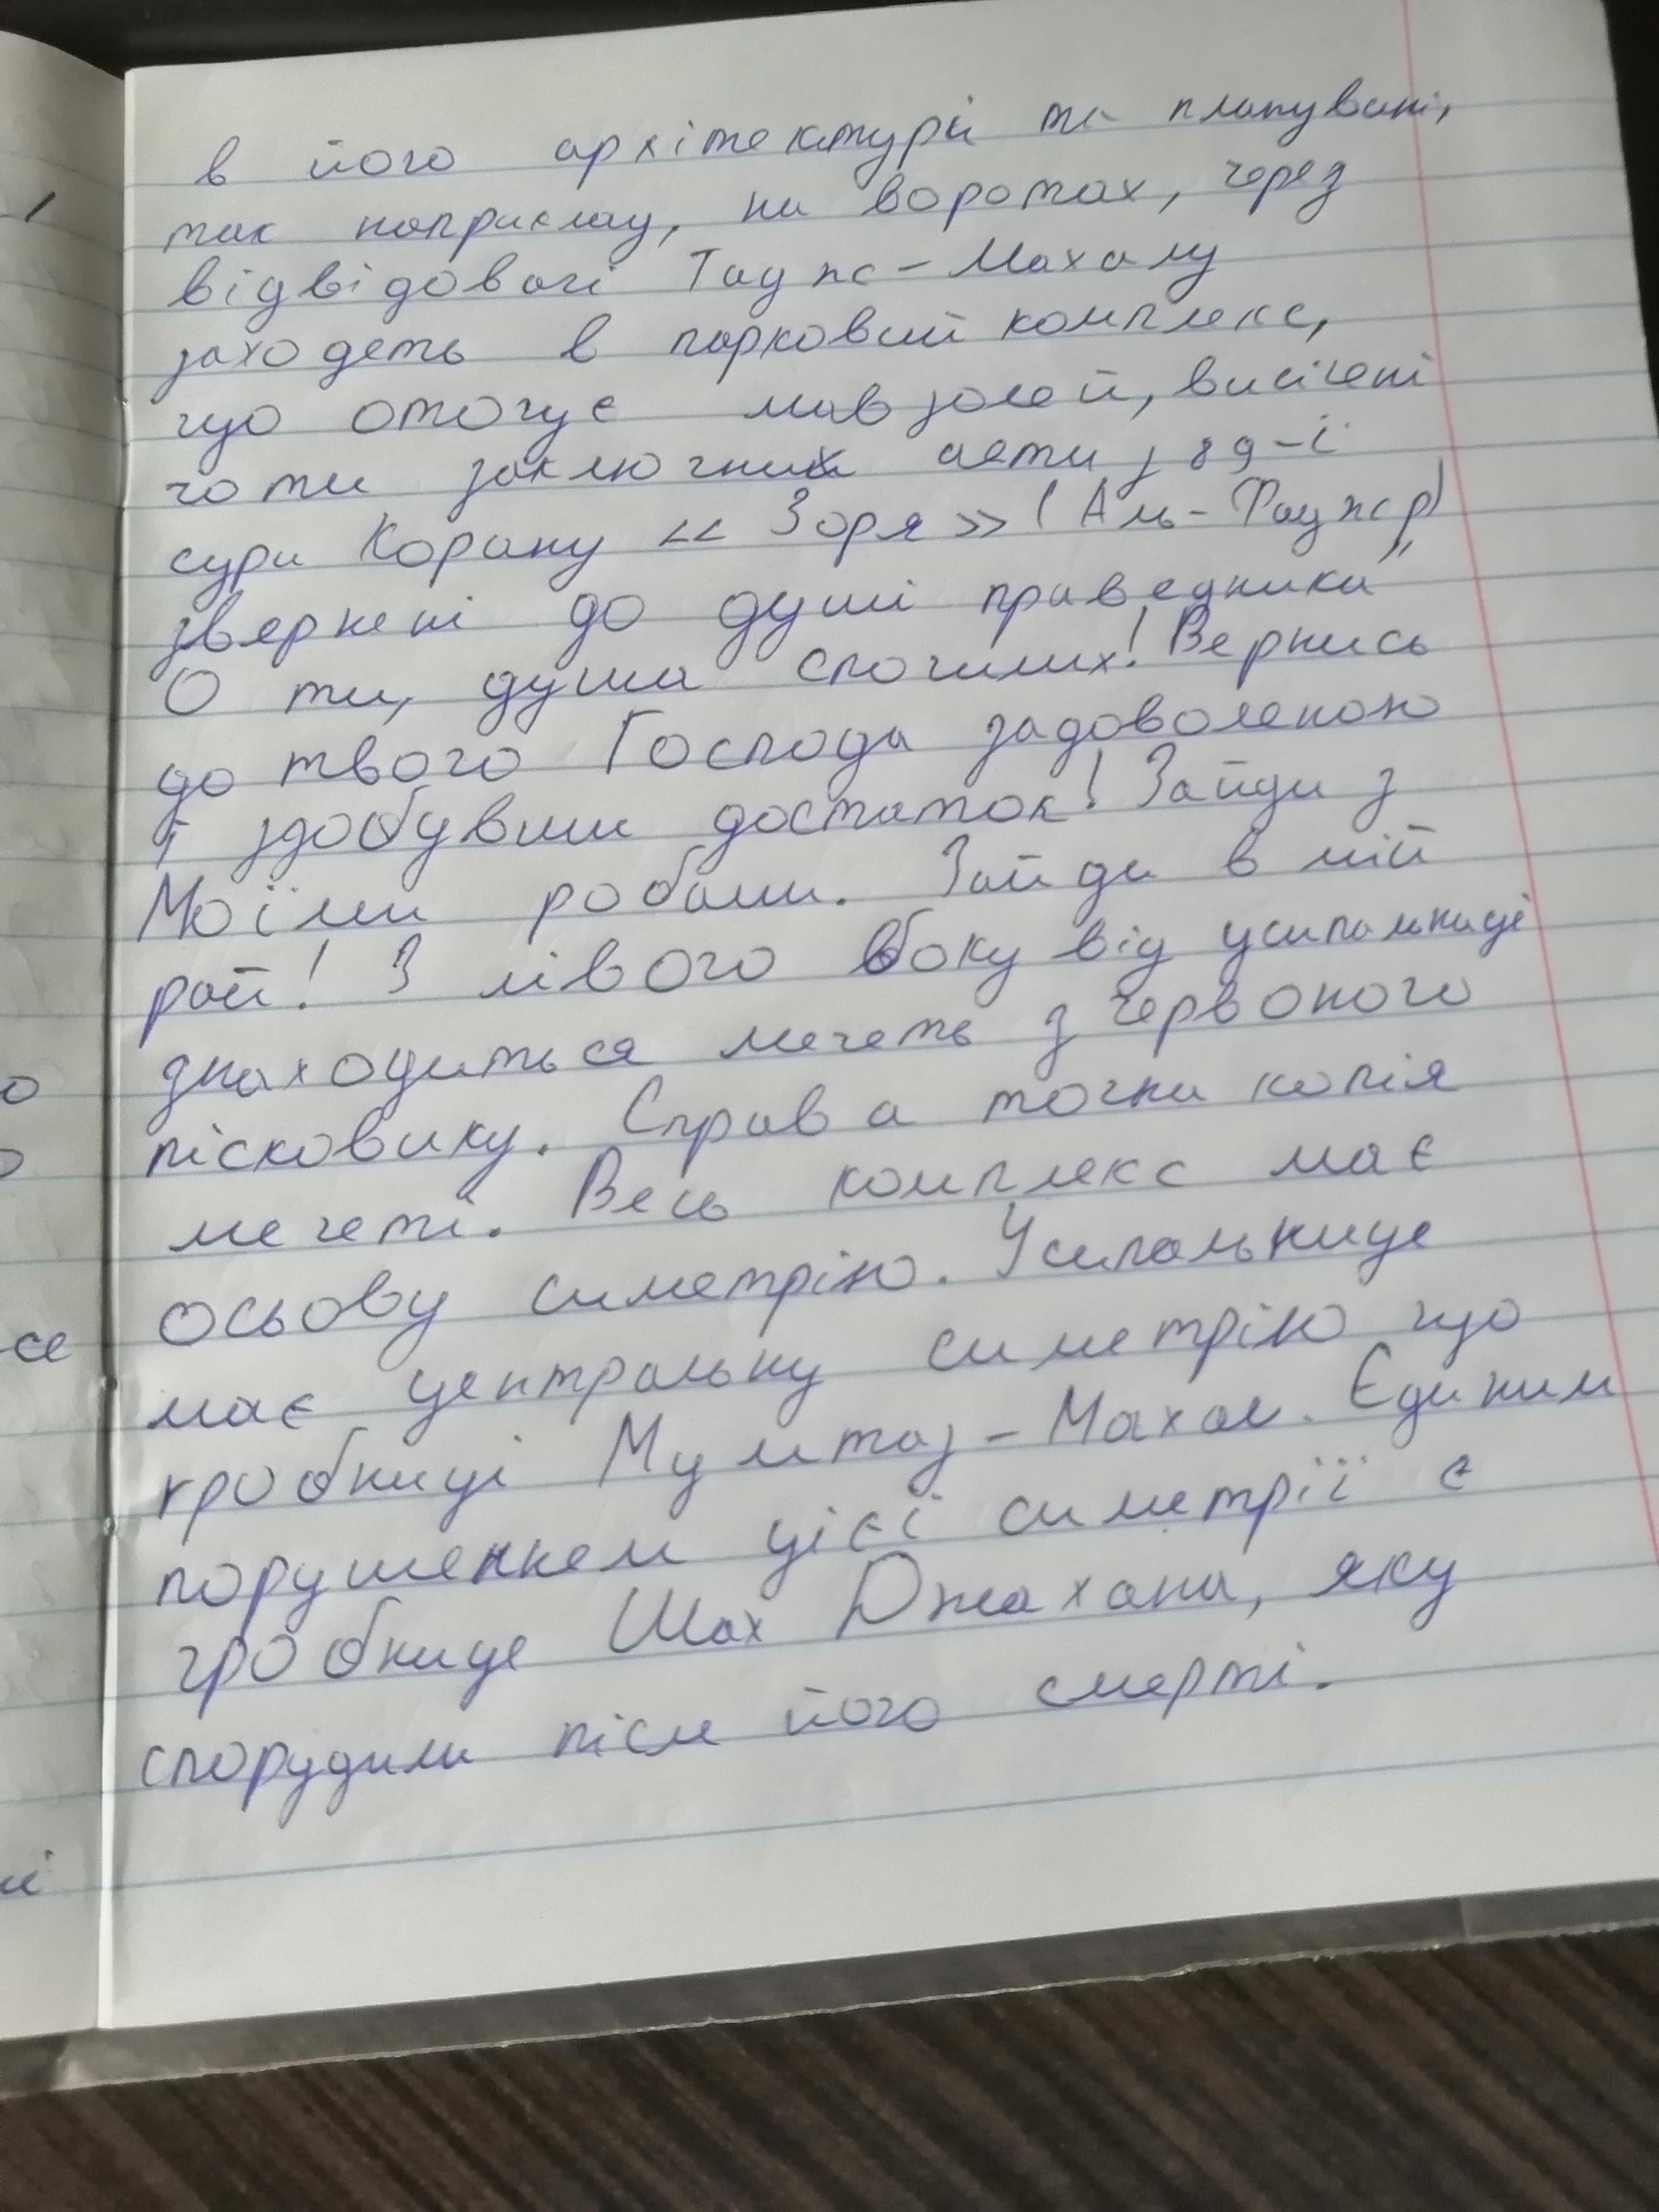 в його архітектурі та плануванi,
так наприклад, на воротах, через
відвідовачі Тадж-Махалу
заходеть в парковий комплекс,
що оточує мавзолей, висічені
чоти заключних аети з 89-ї
сури Корану << Зоря >> (Аль-Фаджр)
звернені до душі праведника"
О ти, душа спочилих! Вернись
до твого Господа задоволеною
і здобувши достаток! Зайди з
Моїми робами. Зайди в мій
рай! З лівого боку від усипальниці
знаходиться мечеть з червоного
пісковику. Справа точна копія
мечеті. Весь комплекс має
осьову симетрію. Усипальнице
має центральну симетрію що
гробниці Мумтаз-Махал. Єдиним
порушенкем цієї симетрії є
гробнице Шах Джахана, яку
спорудили після його смерті.